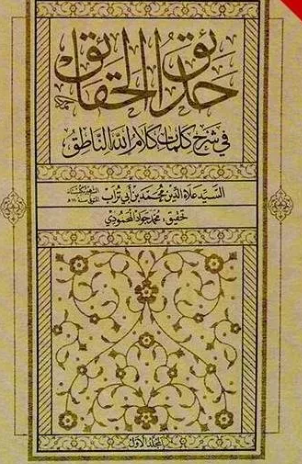 حدائق الحقائق
في شرح كلمات كلام الله الناطق
السيد علاء الدين محمد بن أبي تراب
تحقيق: محمد جواد المحمودي
المجلد الأول